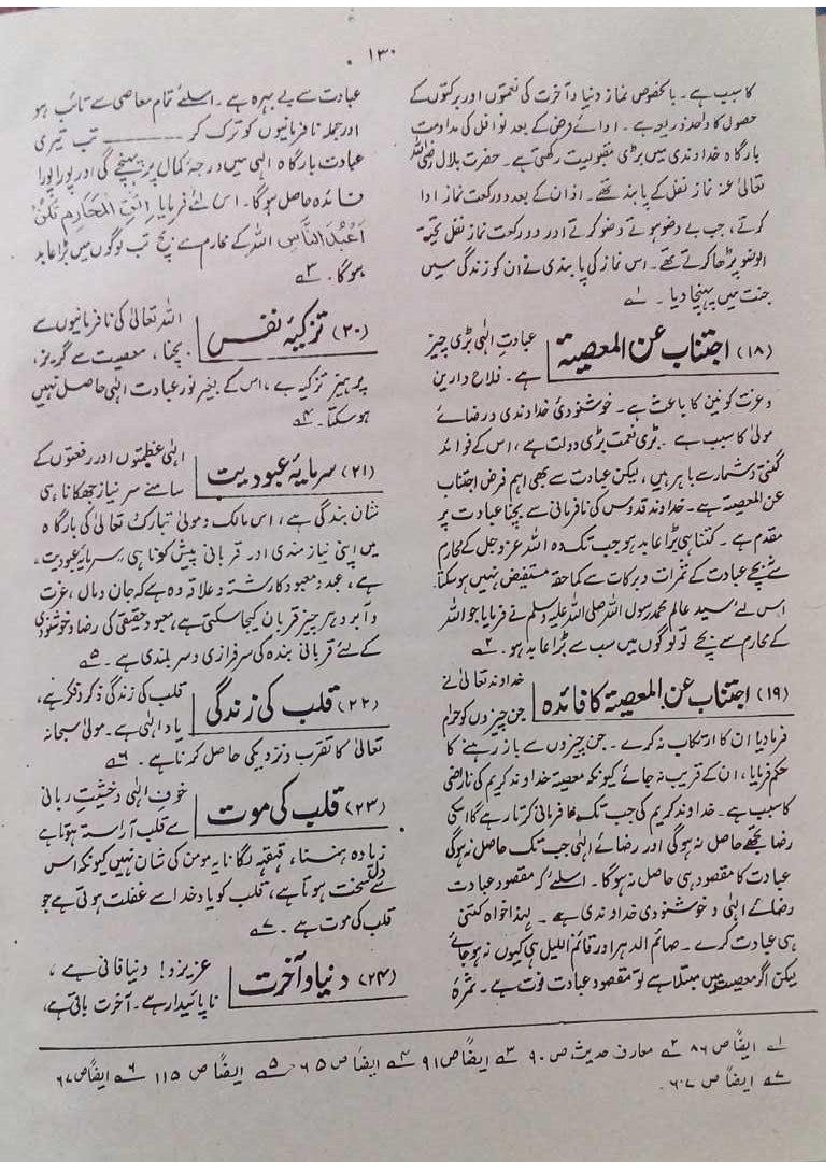 ۱۳۰
کا سبب ہے۔ بالخصوص نماز دنیا و آخرت کی نعمتوں اور برکتوں کے
حصول کا واحد ذریعہ ہے۔ ادائے فرض کے بعد نوافل کی مداومت
بارگاہ خداوندی میں بڑی مقبولیت رکھتی ہے۔ حضرت بلال رضی اللہ
تعالیٰ عنہ نماز نفل کے پابند تھے۔ اذان کے بعد دو رکعت نماز ادا
کرتے، جب بے وضو ہوتے وضو کرتے اور دو رکعت نماز نفل تحیۃ
الوضو پڑھا کرتے تھے۔ اس نماز کی پابندی نے ان کو زندگی میں
جنت میں پہنچا دیا۔ ۱؎
(۱۸) اجتناب عن المعصیۃ
عبادتِ الٰہی بڑی چیز
ہے۔ فلاح دارین
وعزت کونین کا باعث ہے۔ خوشنودیٔ خداوندی و رضائے
مولیٰ کا سبب ہے۔ بڑی نعمت بڑی دولت ہے، اس کے فوائد
گنتی و شمار سے باہر ہیں، لیکن عبادت سے بھی اہم فرض اجتناب
عن المعصیۃ ہے۔ خداوند قدوس کی نافرمانی سے بچنا عبادت پر
مقدم ہے۔ کتنا ہی بڑا عابد ہو جب تک وہ اللہ عزوجل کے محارم
سے بچے عبادت کے ثمرات و برکات سے کما حقہ مستفیض نہیں ہو سکتا
اس لئے سید عالم محمد رسول اللہ صلی اللہ علیہ وسلم نے فرمایا جو اللہ
کے محارم سے بچے تو لوگوں میں سب سے بڑا عابد ہو۔ ۲؎
(۱۹) اجتناب عن المعصیۃ کا فائدہ
خداوند تعالیٰ نے
جن چیزوں کو حرام
فرما دیا ان کا ارتکاب نہ کرے۔ جن چیزوں سے باز رہنے کا
حکم فرمایا، ان کے قریب نہ جائے کیونکہ معصیۃ خداوند کریم کی ناراضی
کا سبب ہے۔ خداوند کریم کی جب تک نافرمانی کرتا رہے گا اسکی
رضا تجھے حاصل نہ ہوگی اور رضائے الٰہی جب تک حاصل نہ ہوگی
عبادت کا مقصود ہی حاصل نہ ہوگا۔ اسلئے کہ مقصود عبادت
رضائے الٰہی و خوشنودی خداوندی ہے۔ لہذا خواہ کتنی
ہی عبادت کرے۔ صائم الدہر اور قائم اللیل ہی کیوں نہ ہو جائے
لیکن اگر معصیت میں مبتلا ہے تو مقصود عبادت فوت ہے۔ ثمرۂ
عبادت سے بے بہرہ ہے۔ اسلئے تمام معاصی سے تائب ہو
اور جملہ نافرمانیوں کو ترک کر ــــــــ تب تیری
عبادت بارگاہ الٰہی میں درجہ کمال پر پہنچے گی اور پورا پورا
فائدہ حاصل ہوگا۔ اس لئے فرمایا اِتَّقِ الْمَحَارِم تَکُنْ
اَعْبُدَ النَّاس اللہ کے محارم سے بچ تب لوگوں میں بڑا عابد
ہوگا۔ ۳؎
(۲۰) تزکیۂ نفس
اللہ تعالیٰ کی نافرمانیوں سے
بچنا، معصیت سے گریز،
پرہیز تزکیہ ہے، اس کے بغیر نور عبادت الٰہی حاصل نہیں
ہو سکتا۔ ۴؎
(۲۱) سرمایۂ عبودیت
الٰہی عظمتوں اور رفعتوں کے
سامنے سر نیاز جھکانا ہی
نشان بندگی ہے، اس مالک و مولیٰ تبارک تعالیٰ کی بارگاہ
میں اپنی نیاز مندی اور قربانی پیش کرنا ہی سرمایہ عبودیت
ہے، عبد و معبود کا رشتہ و علاقہ وہ ہے کہ جان و مال، عزت
و آبرو ہر چیز قربان کیجا سکتی ہے، معبود حقیقی کی رضا و خوشنودی
کے لئے قربانی بندہ کی سرفرازی و سربلندی ہے۔ ۵؎
(۲۲) قلب کی زندگی
قلب کی زندگی ذکر و فکر ہے،
یاد الٰہی ہے۔ مولیٰ سبحانہ
تعالیٰ کا تقرب و نزدیکی حاصل کرنا ہے۔ ۶؎
(۲۳) قلب کی موت
خوف الٰہی و خشیتِ ربانی
سے قلب آراستہ ہوتا ہے
زیادہ ہنسنا، قہقہہ لگانا یہ مومن کی شان نہیں کیونکہ اس
سے دل سخت ہوتا ہے، قلب کو یاد خدا سے غفلت ہوتی ہے جو
قلب کی موت ہے۔ ۷؎
(۲۴) دنیا و آخرت
عزیزو! دنیا فانی ہے،
ناپائیدار ہے۔ آخرت باقی ہے،
۱؎ ایضاً ص ۸۶ ۲؎ معارف حدیث ص ۹۰ ۳؎ ایضاً ص ۹۱ ۴؎ ایضاً ص ۶۵ ۵؎ ایضاً ص ۱۱۵ ۶؎ ایضاً ص ۶۷
۷؎ ایضاً ص ۶۷۔